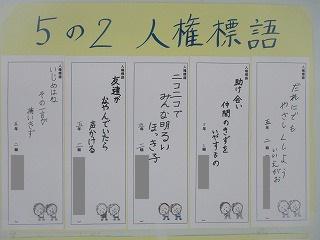 5の2 人権標語
人権標語
だれにでも
やさしくしよう
いいえがお
五年 二組
人権標語
助け合い
仲間のきずを
いやすもの
5年 2組
人権標語
ニコニコで
みんな明るい
ほっき子
五年 二組
人権標語
友達が
なやんでいたら
声かける
五年 二組
人権標語
いじめはね
その一言が
痛いきず
五年 二組